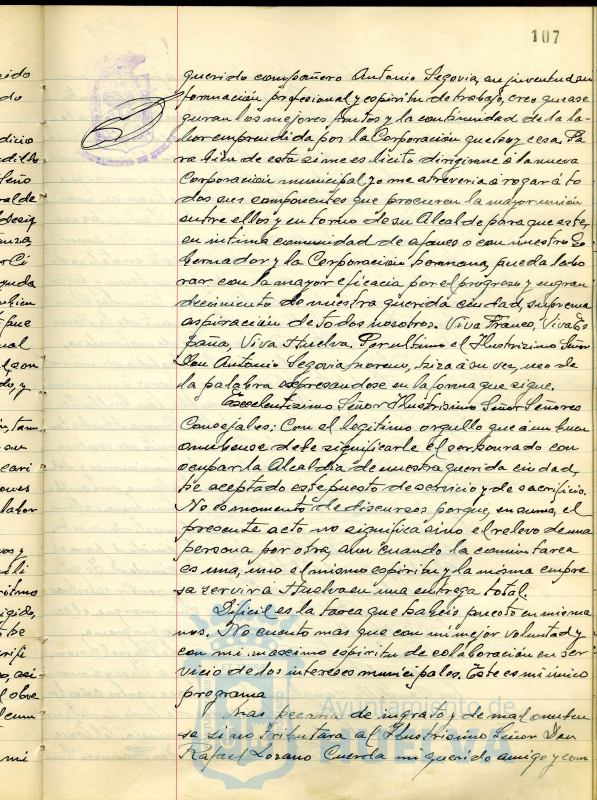 107
querido compañero Antonio Segovia, su juventud, su
formación profesional y espiritu de trabajo, creo que ase
guran los mejores frutos y la continuidad de la la-
bor emprendida por la Corporación que hoy cesa. Pa
ra bién de esta si me es licito dirigirme á la nueva
Corporación municipal, yo me atreveria á rogar á to
dos sus componentes que procuren la mayor unión
entre ellos y en torno de su Alcalde para que este,
en intima comunidad de afanes con nuestro Go
bernador y la Corporación hermana, pueda labo
rar con la mayor eficacia por el progreso y engran
decimiento de nuestra querida ciudad, suprema
aspiración de todos nosotros. Viva Franco, Viva Es
paña, Viva Huelva. Por ultimo el Ilustrisimo Señor
Don Antonio Segovia Moreno, hizo á su vez, uso de
la palabra expresandose en la forma que sigue.
Excelentisimo Señor Ilustrisimo Señor Señores
Concejales: Con el legitimo orgullo que á un buen
onubense debe significarle el ser honrado con
ocupar la Alcaldia de nuestra querida ciudad,
he aceptado este puesto de servicio y de sacrificio.
No es momento de discursos porque, en suma, el
presente acto no significa sino el relevo de una
persona por otra, aun cuando la comun tarea
es una, uno el mismo espiritu y la misma empre
sa servir á Huelva en una entrega total.
Dificil es la tarea que habeis puesto en mis ma
nos. No cuento mas que con mi mejor voluntad y
con mi maximo espiritu de colaboración en ser
vicio de los intereses municipales. Este es mi unico
programa
Mas pecaria de ingrato y de mal onuben
se si no tributara al Ilustrisimo Señor Don
Rafael Lozano Cuerda mi querido amigo y com
Ayuntamiento de
HUELVA